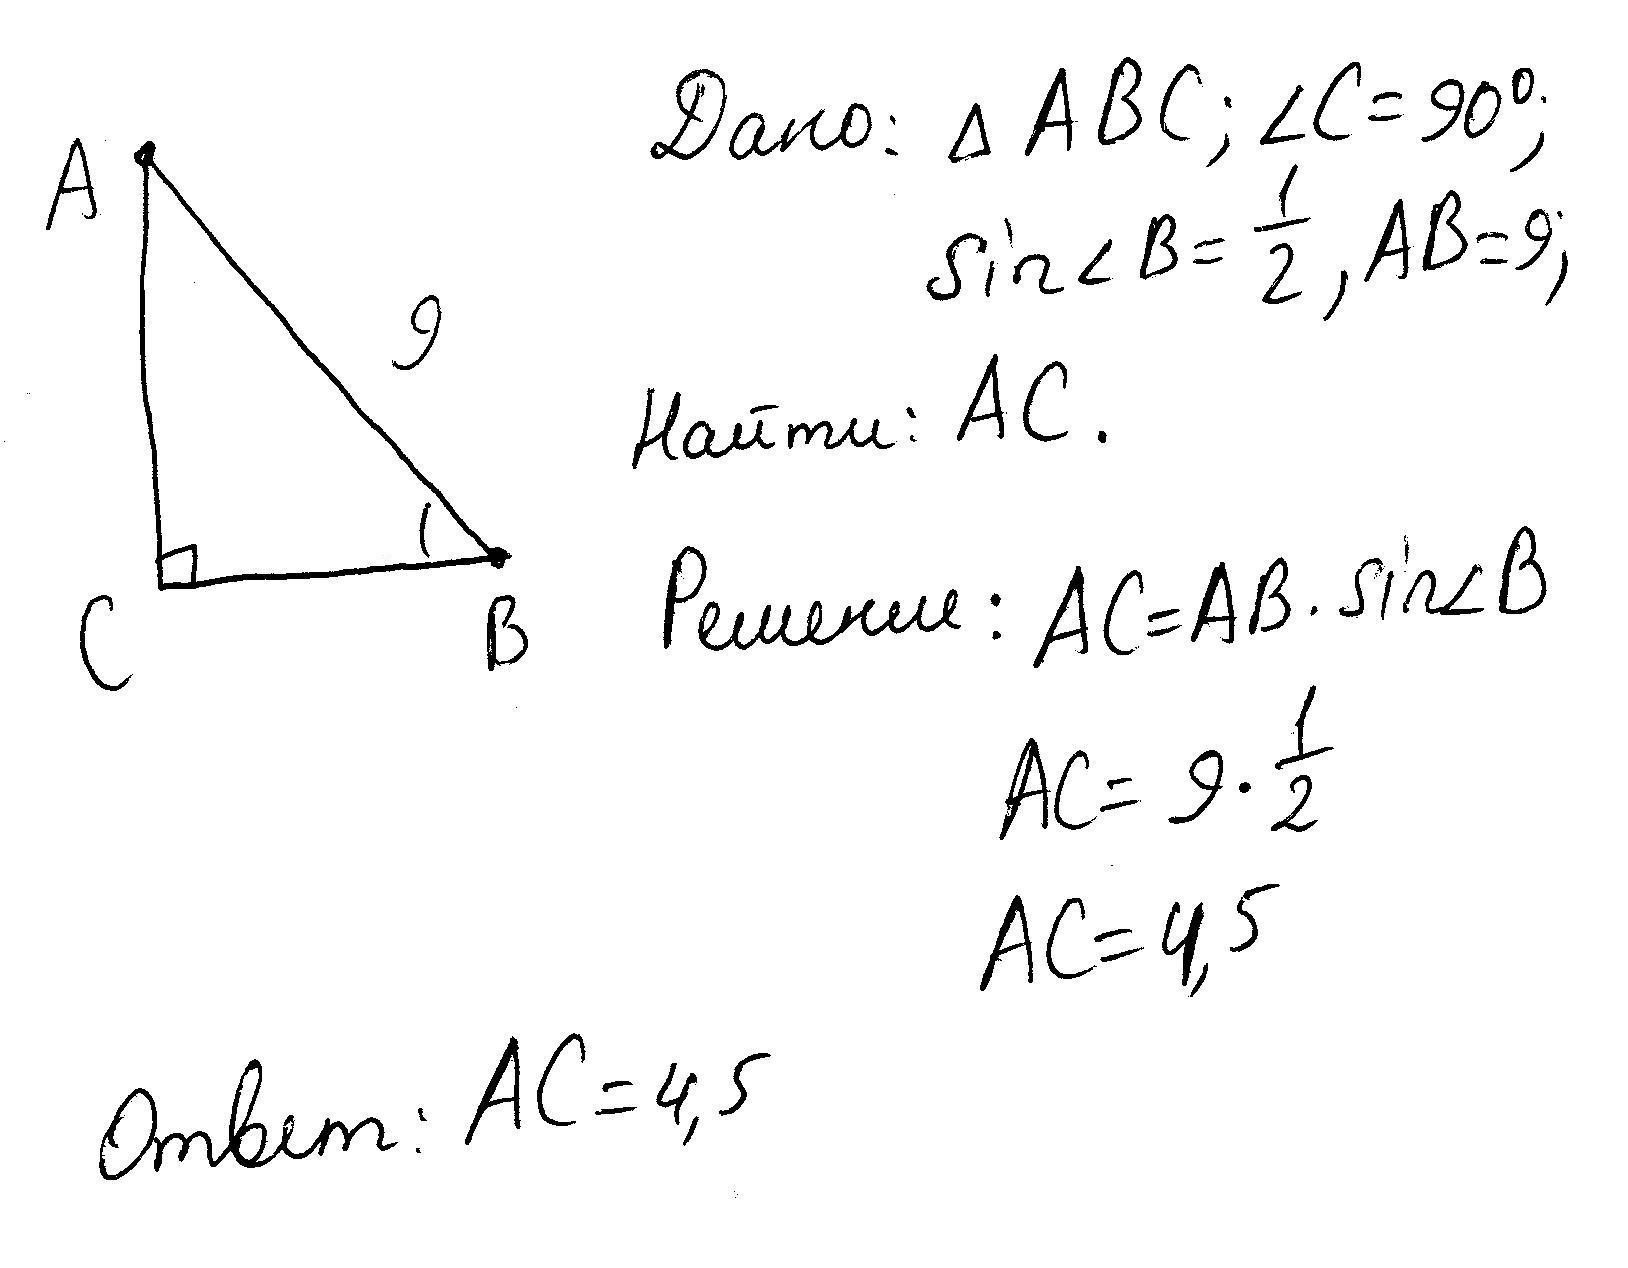 Дано: △ ABC; ∠C = 90°;
sin∠B = 1/2, AB = 9;
A
9
Найти: AC.
C
B
Решение: AC = AB · sin∠B
AC = 9 · 1/2
AC = 4,5
Ответ: AC = 4,5